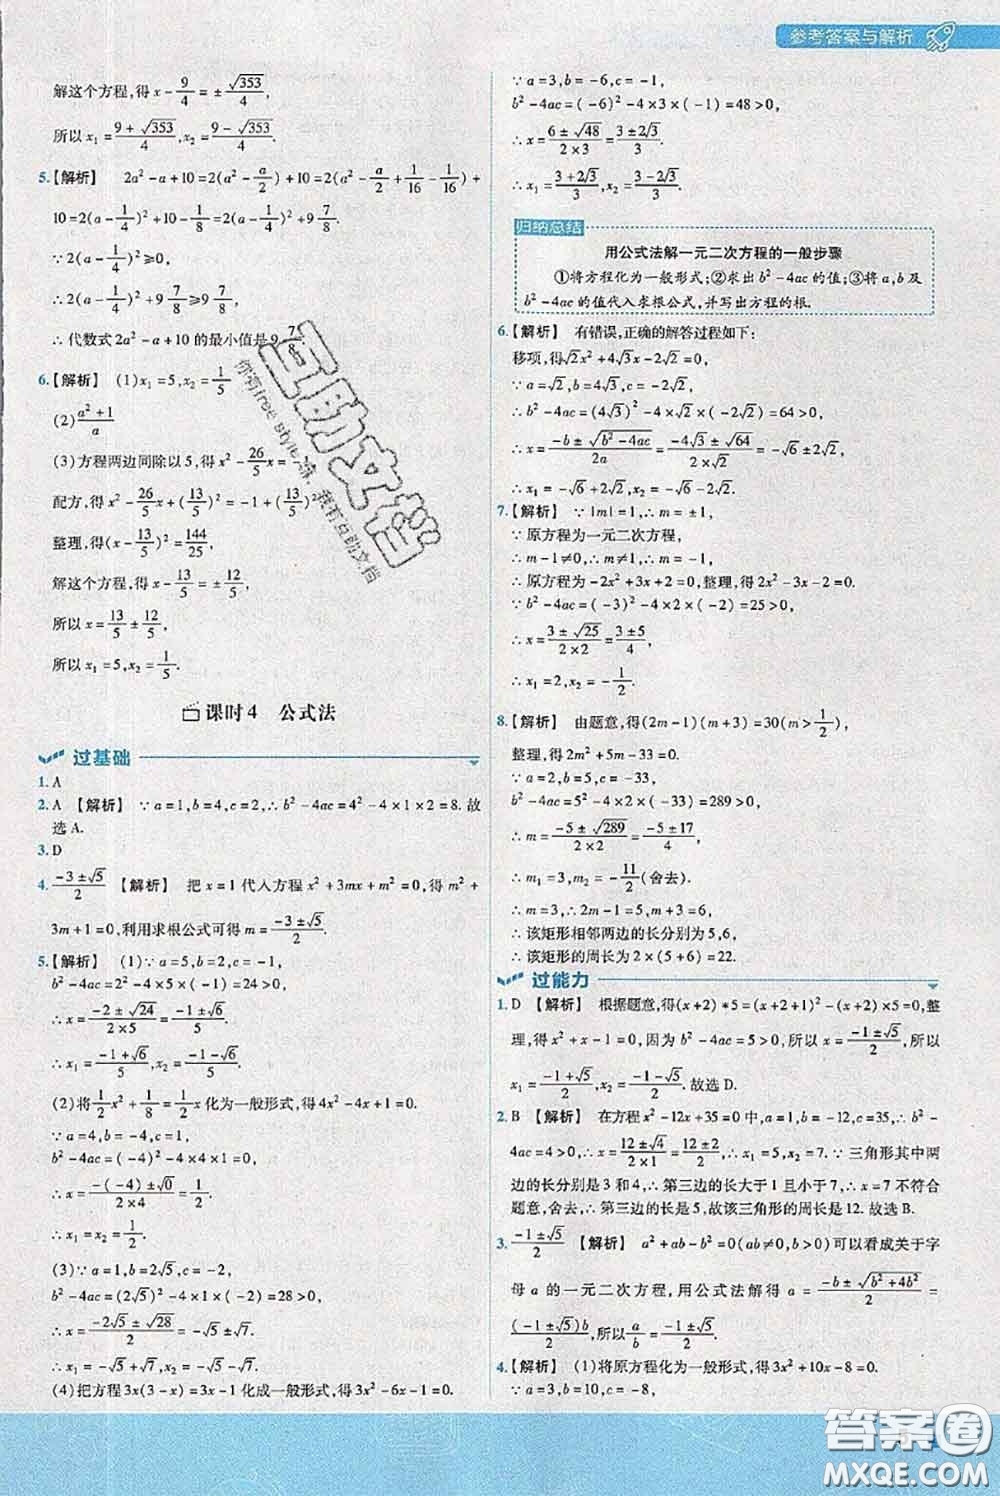 参考答案与解析
解这个方程,得 x - 9/4 = ± √353/4,
所以 x₁ = (9 + √353)/4, x₂ = (9 - √353)/4.
5.【解析】 2a² - a + 10 = 2(a² - a/2) + 10 = 2(a² - a/2 + 1/16 - 1/16) +
10 = 2(a - 1/4)² + 10 - 1/8 = 2(a - 1/4)² + 9 7/8.
∵ 2(a - 1/4)² ≥ 0,
∴ 2(a - 1/4)² + 9 7/8 ≥ 9 7/8,
∴ 代数式 2a² - a + 10 的最小值是 9 7/8.
6.【解析】 (1) x₁ = 5, x₂ = 1/5
(2) (a² + 1)/a
(3) 方程两边同除以 5, 得 x² - 26/5 x =
配方, 得 x² - 26/5 x + (13/5)² = -1 + (13/5)²,
整理, 得 (x - 13/5)² = 144/25,
解这个方程, 得 x - 13/5 = ± 12/5,
所以 x = 13/5 ± 12/5,
所以 x₁ = 5, x₂ = 1/5.
课时4 公式法
过基础
1. A
2. A 【解析】 ∵ a = 1, b = 4, c = 2, ∴ b² - 4ac = 4² - 4 × 1 × 2 = 8. 故
选 A.
3. D
4. (-3 ± √5)/2 【解析】 把 x = 1 代入方程 x² + 3mx + m² = 0, 得 m² +
3m + 1 = 0, 利用求根公式可得 m = (-3 ± √5)/2.
5.【解析】 (1) ∵ a = 5, b = 2, c = -1,
b² - 4ac = 2² - 4 × 5 × (-1) = 24 > 0,
∴ x = (-2 ± √24)/(2 × 5) = (-1 ± √6)/5,
∴ x₁ = (-1 + √6)/5, x₂ = (-1 - √6)/5.
(2) 将 1/2 x² + 1/8 = 1/2 x 化为一般形式, 得 4x² - 4x + 1 = 0.
∵ a = 4, b = -4, c = 1,
b² - 4ac = (-4)² - 4 × 4 × 1 = 0,
∴ x = (-(-4) ± √0)/(2 × 4) = 1/2,
∴ x₁ = x₂ = 1/2.
(3) ∵ a = 1, b = 2√5, c = -2,
b² - 4ac = (2√5)² - 4 × 1 × (-2) = 28 > 0,
∴ x = (-2√5 ± √28)/2 = -√5 ± √7,
∴ x₁ = -√5 + √7, x₂ = -√5 - √7.
(4) 把方程 3x(3 - x) = 3x - 1 化成一般形式, 得 3x² - 6x - 1 = 0.
∵ a = 3, b = -6, c = -1,
b² - 4ac = (-6)² - 4 × 3 × (-1) = 48 > 0,
∴ x = (6 ± √48)/(2 × 3) = (3 ± 2√3)/3,
∴ x₁ = (3 + 2√3)/3, x₂ = (3 - 2√3)/3.
归纳总结
用公式法解一元二次方程的一般步骤
①将方程化为一般形式;②求出 b² - 4ac 的值;③将 a, b 及
b² - 4ac 的值代入求根公式, 并写出方程的根.
6.【解析】 有错误, 正确的解答过程如下:
移项, 得 √2x² + 4√3x - 2√2 = 0,
∵ a = √2, b = 4√3, c = -2√2,
∴ b² - 4ac = (4√3)² - 4 × √2 × (-2√2) = 64 > 0,
∴ x = (-b ± √(b² - 4ac))/2a = (-4√3 ± √64)/(2 × √2) = -√6 ± 2√2,
∴ x₁ = -√6 + 2√2, x₂ = -√6 - 2√2.
7.【解析】 ∵ |m| = 1, ∴ m = ±1,
∵ 原方程为一元二次方程,
∴ m - 1 ≠ 0, ∴ m ≠ 1, ∴ m = -1,
∴ 原方程为 -2x² + 3x + 2 = 0, 整理, 得 2x² - 3x - 2 = 0.
∵ b² - 4ac = (-3)² - 4 × 2 × (-2) = 25 > 0,
∴ x = (3 ± √25)/(2 × 2) = (3 ± 5)/4,
∴ x₁ = 2, x₂ = -1/2.
8.【解析】 由题意, 得 (2m - 1)(m + 3) = 30(m > 1/2),
整理, 得 2m² + 5m - 33 = 0.
∵ a = 2, b = 5, c = -33,
b² - 4ac = 5² - 4 × 2 × (-33) = 289 > 0,
∴ m = (-5 ± √289)/(2 × 2) = (-5 ± 17)/4,
∴ m₁ = 3, m₂ = -11/2 (舍去).
∴ m = 3, ∴ 2m - 1 = 5, m + 3 = 6,
∴ 该矩形相邻两边的长分别为 5, 6,
∴ 该矩形的周长为 2 × (5 + 6) = 22.
过能力
1. D 【解析】 根据题意, 得 (x + 2) * 5 = (x + 2 + 1)² - (x + 2)5 = 0, 整
理, 得 x² + x - 1 = 0. 因为 b² - 4ac = 5 > 0, 所以 x = (-1 ± √5)/2, 所以
x₁ = (-1 + √5)/2, x₂ = (-1 - √5)/2. 故选 D.
2. B 【解析】 在方程 x² - 12x + 35 = 0 中, a = 1, b = -12, c = 35, ∴ b² -
4ac = 4 > 0, ∴ x = (12 ± √4)/(2 × 1) = (12 ± 2)/2, ∴ x₁ = 5, x₂ = 7. ∵ 三角形其中两
边的长分别是 3 和 4, ∴ 第三边的长大于 1 且小于 7, ∴ x = 7 不符合
题意, 舍去, ∴ 第三边的长是 5, 故该三角形的周长是 12. 故选 B.
3. (-1 ± √5)/2 【解析】 a² + ab - b² = 0(ab ≠ 0, b > 0) 可以看成关于字
母 a 的一元二次方程, 用公式法解得 a = (-b ± √(b² + 4b²))/2 =
((-1 ± √5)b)/2, 所以 a/b = (-1 ± √5)/2.
4.【解析】 (1) 将原方程化为一般形式, 得 3x² + 10x - 8 = 0.
∵ a = 3, b = 10, c = -8,
互助文档
你有free style 嘛, 我有互助文档
5
答案圈
MXQE.COM